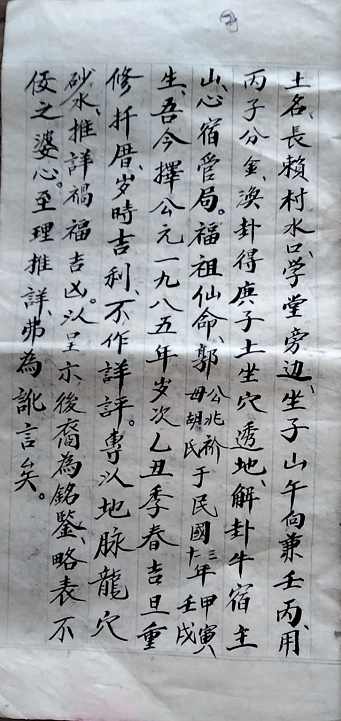 土名、長賴村水口、学堂旁边、坐子山午向兼壬丙、用
丙子分金、渙卦得庚子土坐穴透地、解卦牛宿主
山、心宿管局。福祖仙命、郭公兆母胡氏于民國三年甲寅壬戌
生、吾今擇公元一九八五年岁次乙丑季春吉旦重
修扦厝、岁時吉利、不作詳評。專以地脉龍穴
砂水、推詳禍福吉凶。以呈示後裔為銘鑒、略表不
佞之婆心。至理推詳、弗為訛言矣。